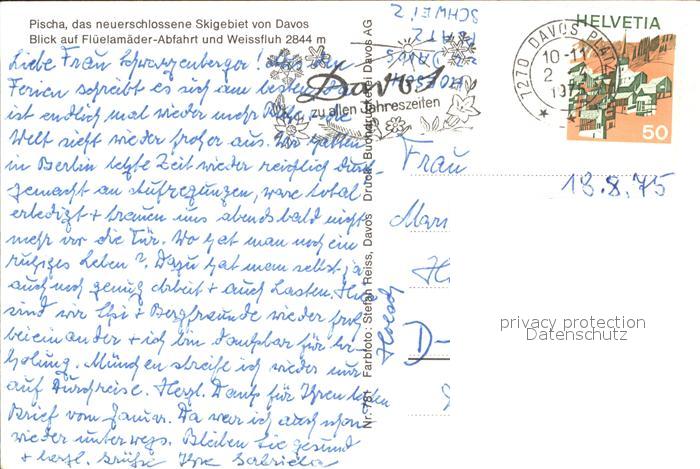 Pischa, das neuerschlossene Skigebiet von Davos
Blick auf Flüelamäder-Abfahrt und Weissfluh 2844 m
Liebe Frau Schwarzenberger! Aus den
Ferien schreibt es sich am besten. Man
ist endlich mal wieder mehr Mensch, die
Welt sieht wieder froher aus. Wir hatten
in Berlin letzte Zeit wieder reichlich durch-
gemacht an Aufregungen, ware total
erledigt + trauen uns abends bald nicht
mehr vor die Tür. Wo hat man noch ein
ruhiges Leben? Dazu hat man selbst ja
auch noch genug Arbeit + auch Lasten. Hier
sind wir + Bergfreunde wieder froh
beieinander + ich bin dankbar für Er-
holung. München streife ich wieder nur
auf Durchreise. Herzl. Dank für Ihren lieben
Brief vom Januar. Da war ich auch schon
wieder unterwegs. Bleiben Sie gesund
+ herzl. Grüße Ihre Gabriela
SCHWEIZ
PLATZ
DAVOS
Davos
zu allen Jahreszeiten
7270 DAVOS PLATZ
10-11
1975
HELVETIA
50
Nr. 781 Farbfoto: Stefan Reiss, Davos Druck: Buchdruckerei Davos AG
Frau
18.8.75
Mar
D-
privacy protection
Datenschutz